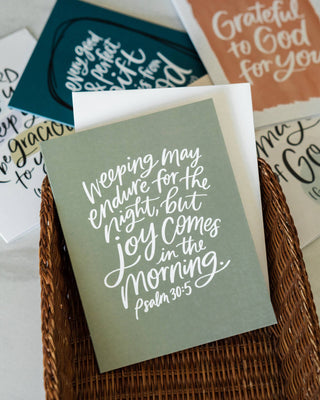 every good
& perfect
gift
is from
God
Grateful
to God
for you
keep
be gracious
to you
weeping may
endure for the
night, but
joy comes
in the
morning.
psalm 30:5